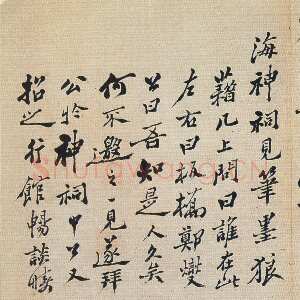 海神祠見筆墨狼
藉几上問曰誰在此
左右曰板橋鄭燮
公曰吾知是人久矣
何不邀之一見遂拜
公於神祠中公又
招之行館暢談